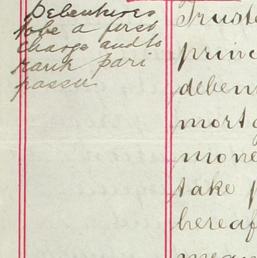 Debentures
to be a first
charge and to
rank pari
passu
Truste
princ
deben
mortg
mone
take p
hereaf
mean